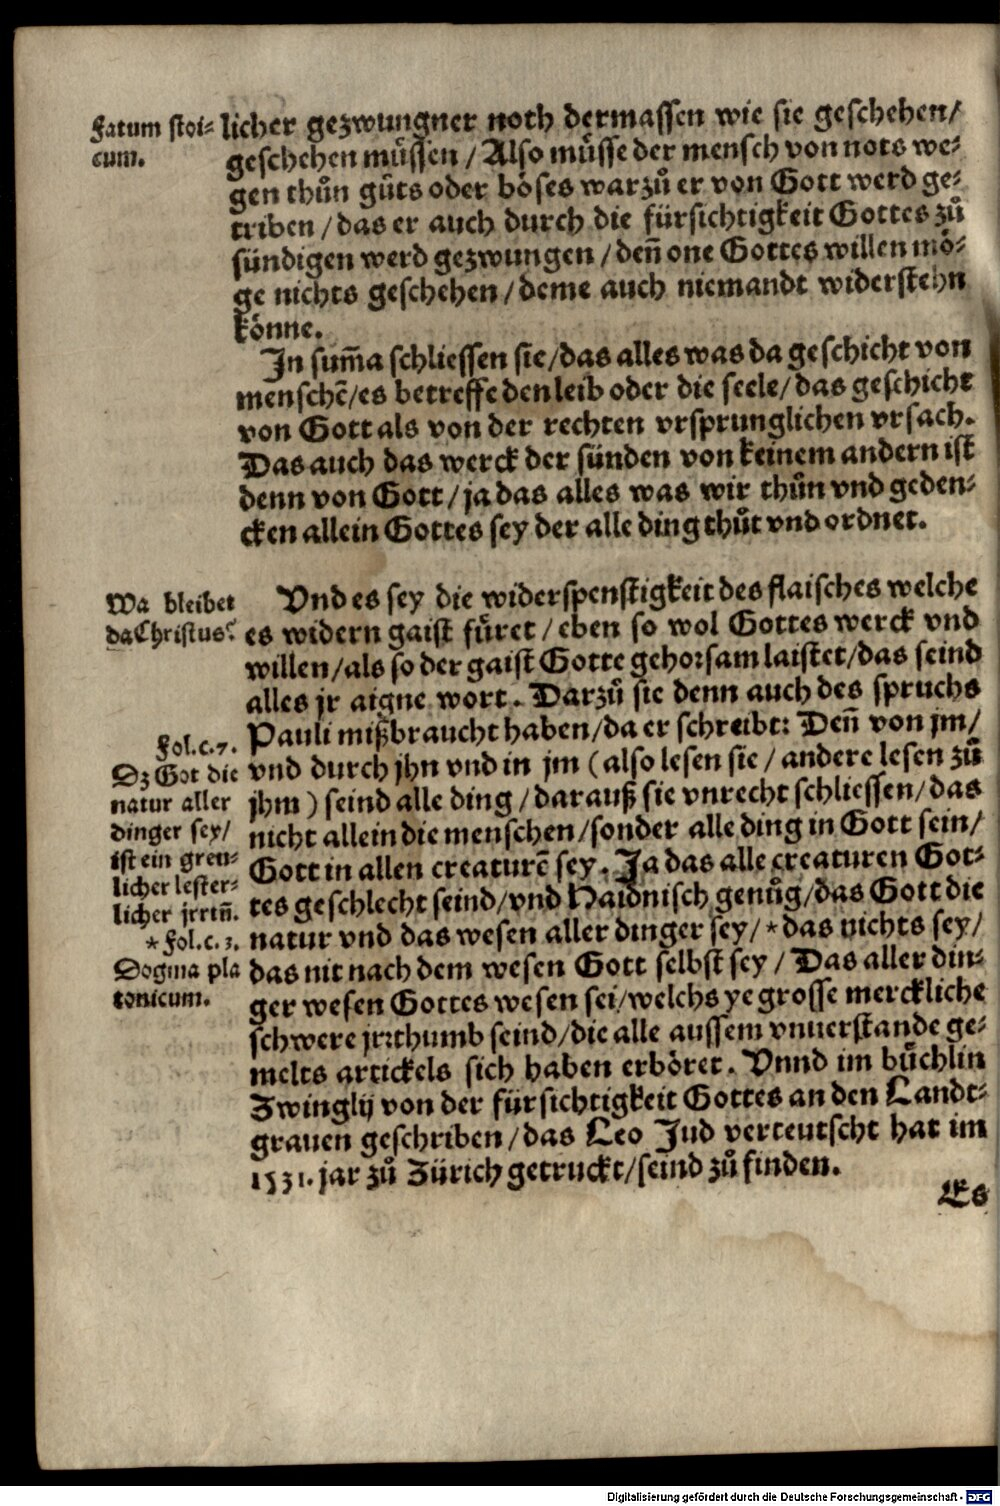 Fatum stoi=
cum.
licher gezwungner noth dermassen wie sie geschehen/
geschehen müssen / Also müsse der mensch von nots we=
gen thůn gůts oder böses warzů er von Gott werd ge=
triben / das er auch durch die fürsichtigkeit Gottes zů
sündigen werd gezwungen / deñ one Gottes willen mö=
ge nichts geschehen / deme auch niemandt widerstehn
könne.
In sum̃a schliessen sie/das alles was da geschicht von
menschẽ/es betreffe den leib oder die seele/das geschicht
von Gott als von der rechten vrsprunglichen vrsach.
Das auch das werck der sünden von keinem andern ist
denn von Gott / ja das alles was wir thůn vnd geden=
cken allein Gottes sey der alle ding thůt vnd ordnet.
Wa bleibet
da Christus?
Vnd es sey die widerspenstigkeit des flaisches welche
es widern gaist füret / eben so wol Gottes werck vnd
willen/als so der gaist Gotte gehorsam laistet/das seind
alles jr aigne wort. Darzů sie denn auch des spruchs
Pauli mißbraucht haben/da er schreibt: Deñ von jm/
vnd durch jhn vnd in jm (also lesen sie / andere lesen zů
jhm) seind alle ding / darauß sie vnrecht schliessen/das
nicht allein die menschen/sonder alle ding in Gott sein/
Gott in allen creaturẽ sey. Ja das alle creaturen Got=
tes geschlecht seind/vnd Haidnisch genůg/das Gott die
natur vnd das wesen aller dinger sey/*das nichts sey/
das nit nach dem wesen Gott selbst sey / Das aller din=
ger wesen Gottes wesen sei/welchs ye grosse merckliche
schwere jrrthumb seind/die alle aussem vnuerstande ge=
melts artickels sich haben erböret. Vnnd im büchlin
Zwinglij von der fürsichtigkeit Gottes an den Landt=
grauen geschriben / das Leo Jud verteutscht hat im
1531. jar zů Zürich getruckt/seind zů finden.
Fol.c.7.
Dz Got die
natur aller
dinger sey/
ist ein greu=
licher lester=
licher jrrtñ.
* Fol.c.3.
Dogma pla
tonicum.
Es
Digitalisierung gefördert durch die Deutsche Forschungsgemeinschaft - DFG